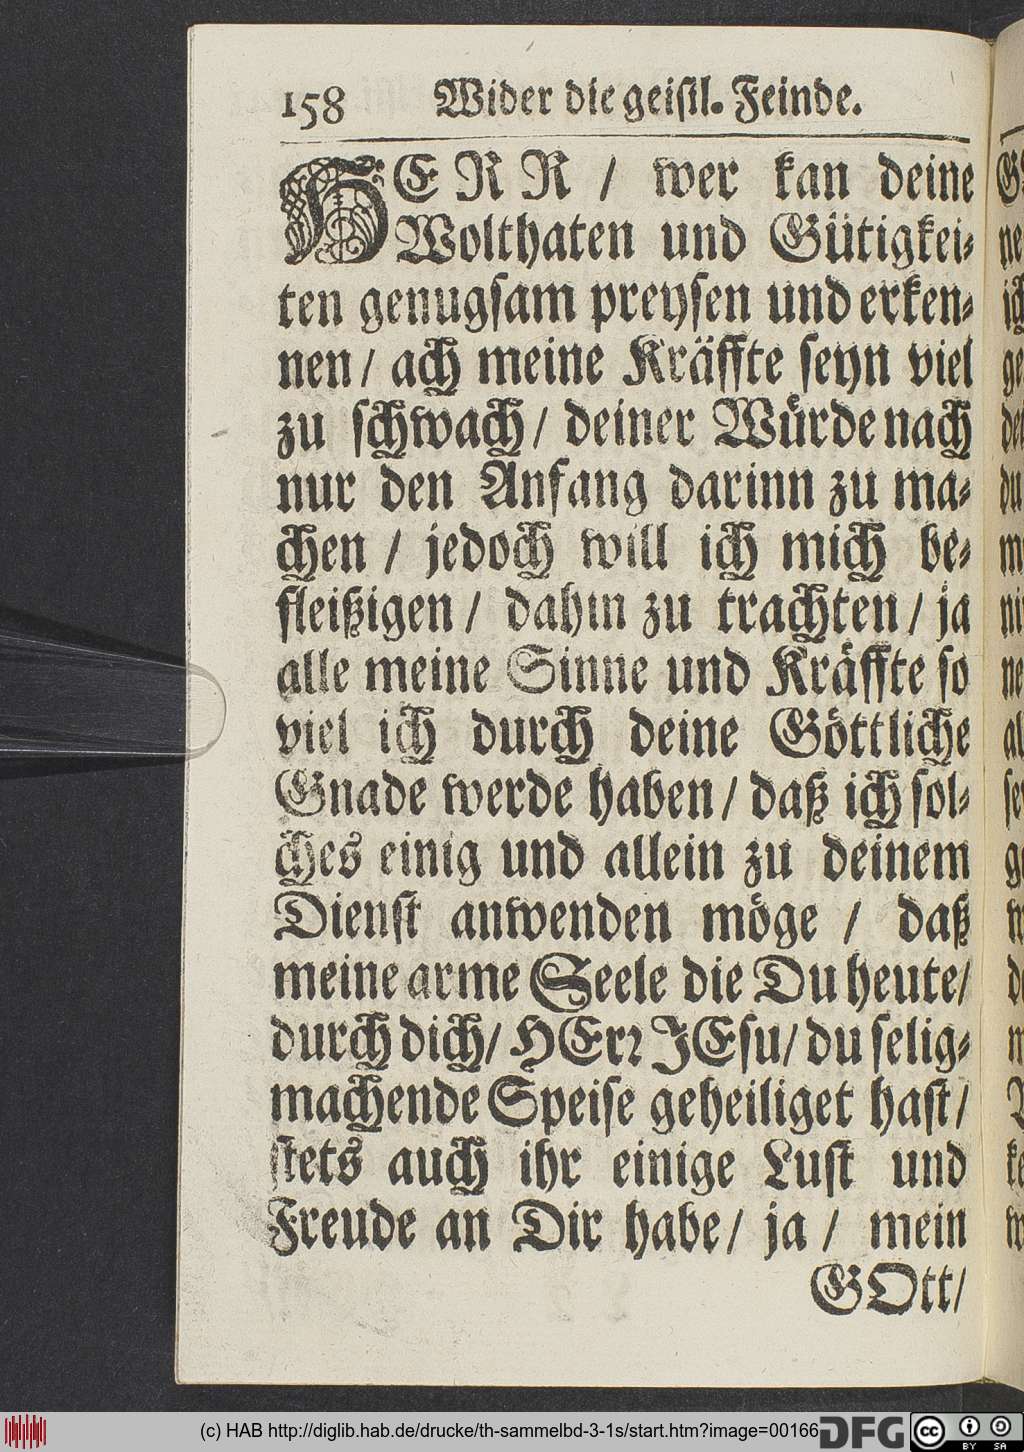 158 Wider die geistl. Feinde.
HERR / wer kan deine
Wolthaten und Gütigkei⸗
ten genugsam preysen und erken⸗
nen / ach meine Kräffte seyn viel
zu schwach / deiner Würde nach
nur den Anfang darinn zu ma⸗
chen / jedoch will ich mich be⸗
fleißigen / dahin zu trachten / ja
alle meine Sinne und Kräffte so
viel ich durch deine Göttliche
Gnade werde haben / daß ich sol⸗
ches einig und allein zu deinem
Dienst anwenden möge / daß
meine arme Seele die Du heute /
durch dich / HErꝛ JEsu / du selig⸗
machende Speise geheiliget hast /
stets auch ihr einige Lust und
Freude an Dir habe / ja / mein
GOtt /
(c) HAB http://diglib.hab.de/drucke/th-sammelbd-3-1s/start.htm?image=00166
DFG
cc BY SA